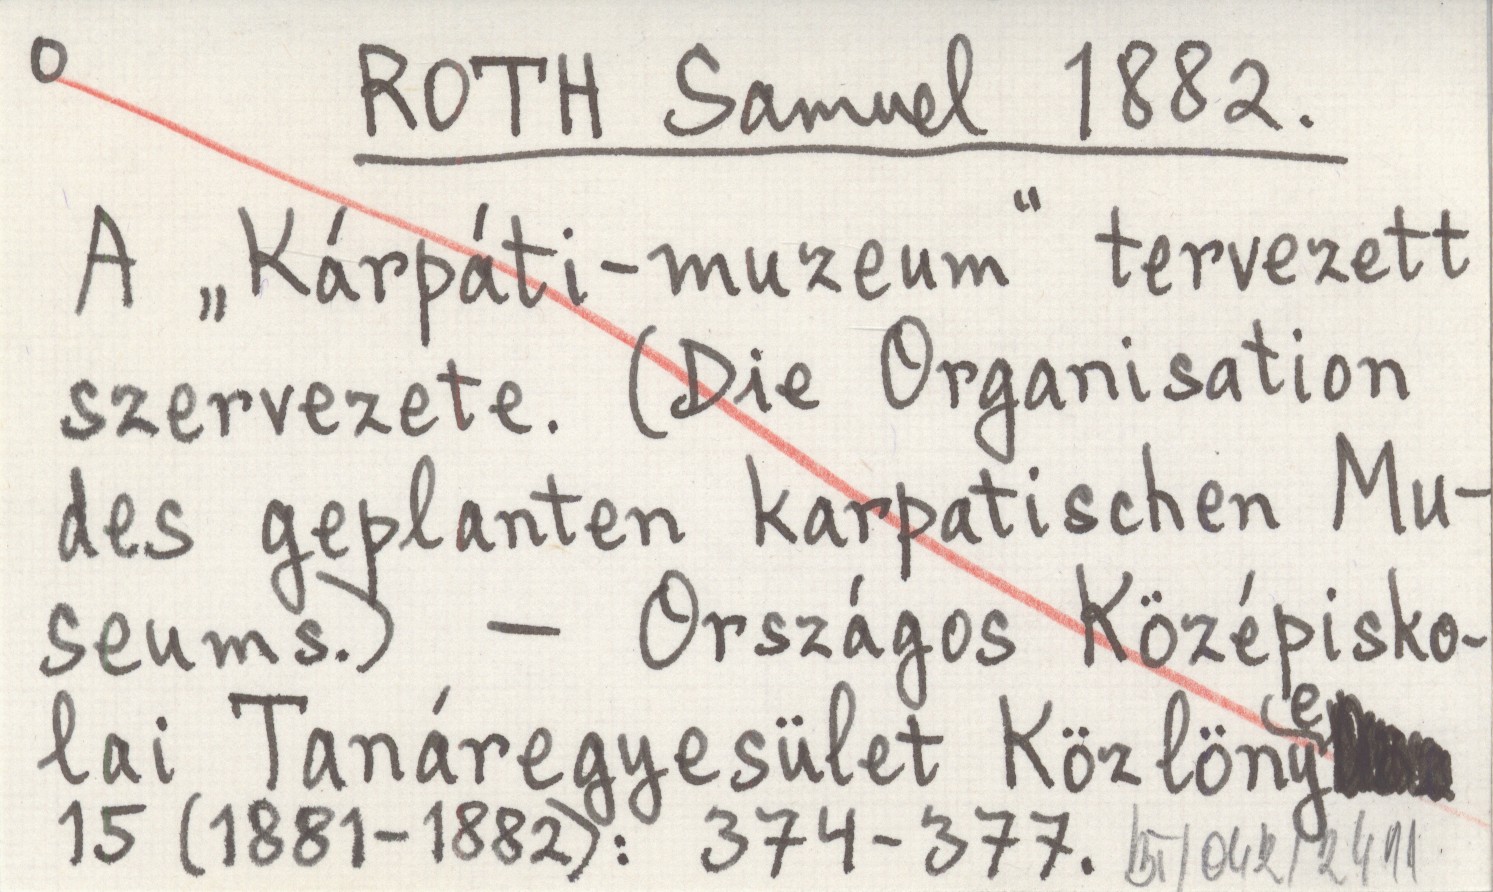 O
ROTH Samuel 1882.
A „Kárpáti-muzeum“ tervezett
szervezete. (Die Organisation
des geplanten karpatischen Mu-
seums.) — Országos Középisko-
lai Tanáregyesület Közlönye
15 (1881-1882): 374-377.